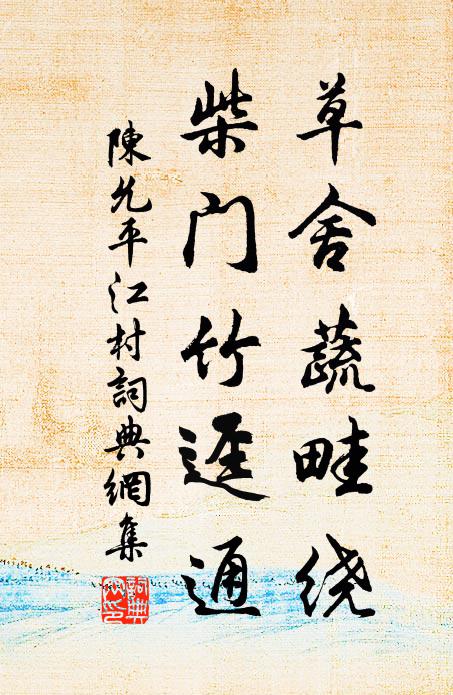 草舍蔬畦绕
柴门竹迳通
陳允平江村詞典網集